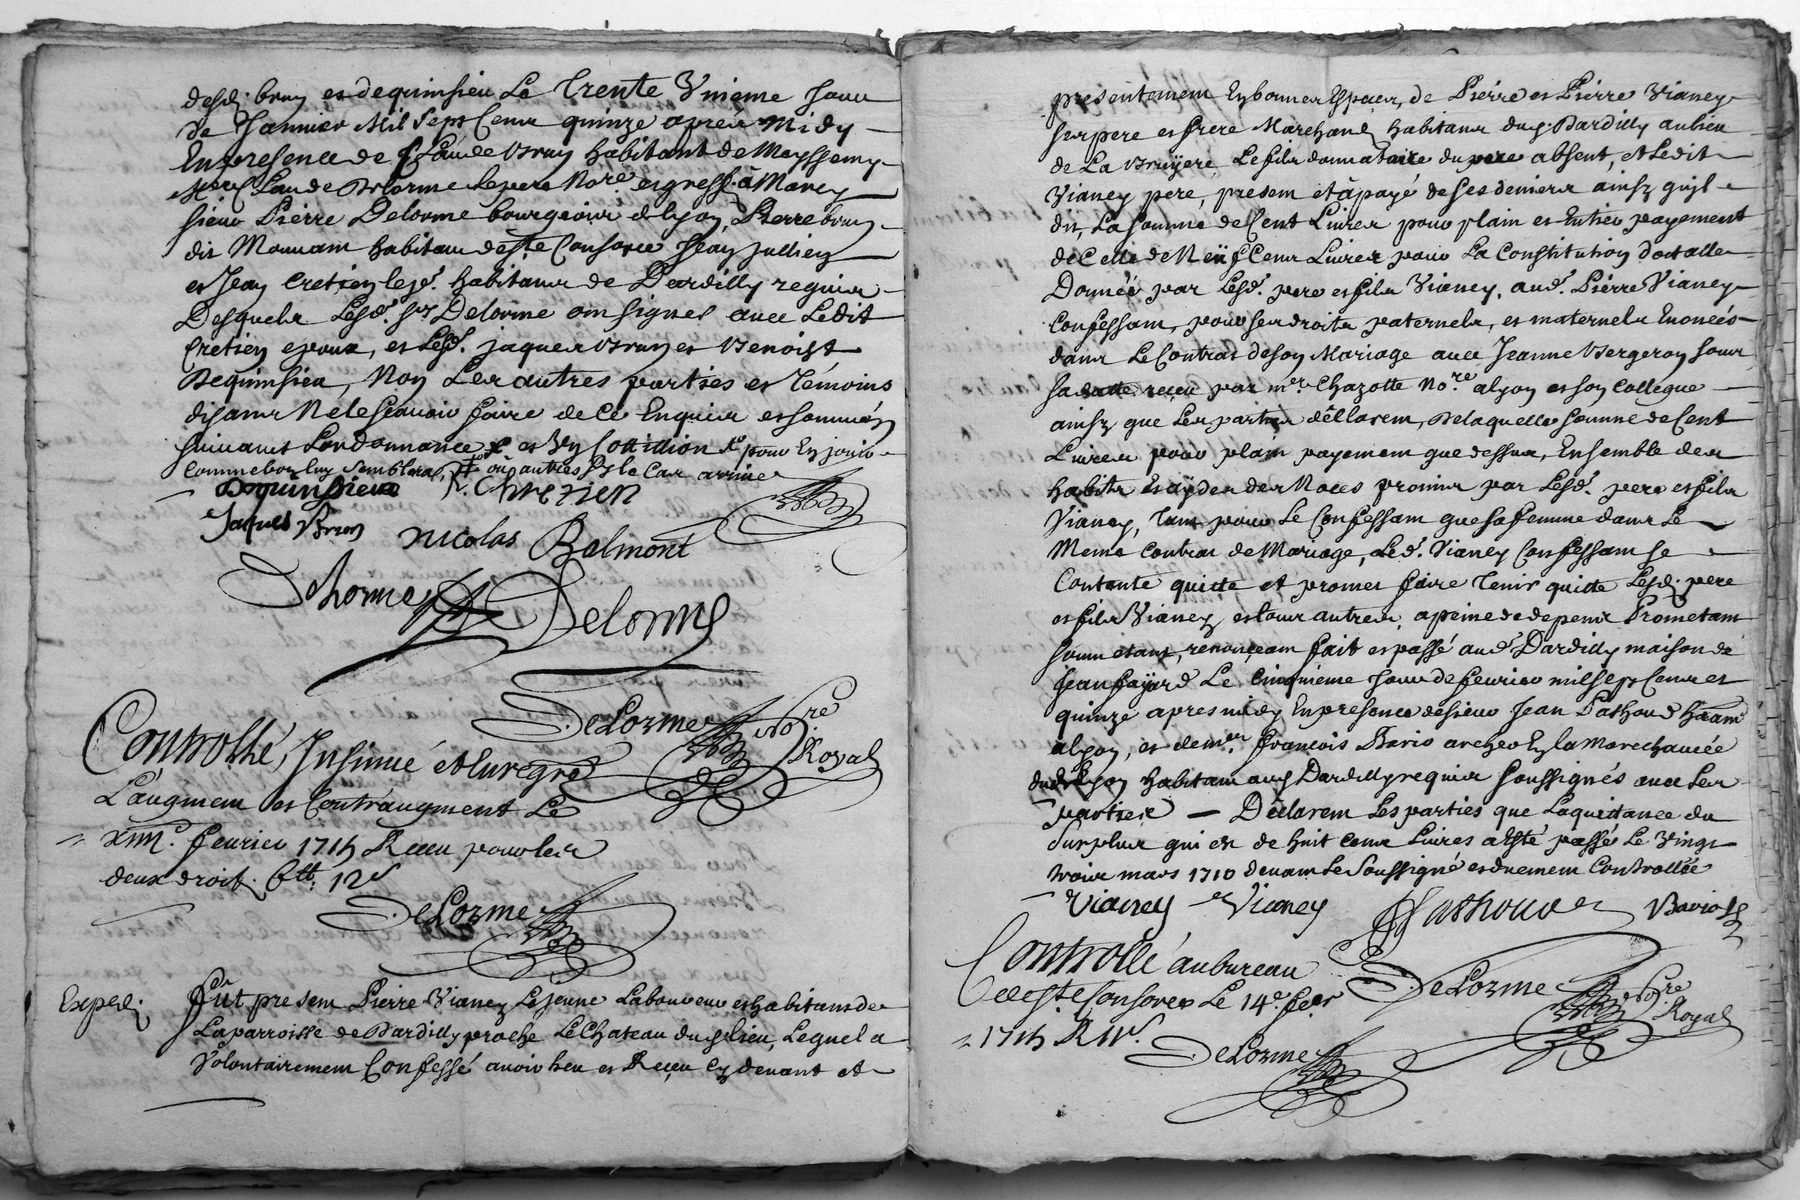 desd. brun et dequinsieu Le Trente Unieme Jour
de Janvier Mil Sept Cent quinze apres Midy
En presence de Claude Brun habitant de Meyssemy
Mre Claude Delorme Le pere Nore. et gress. à Marcy
sieur Pierre Delorme bourgeois de lyon, Pierre brun
dit habitans deste Consorce Jean Jullien
et Jean Cretien lejе. habitans de Dardilly requis
Desquels Lesd. srs Delorme ont signés avec Ledit
Cretien epoux, et Lesd. jaques Brun et Benoist
Dequinsieu, Non Les autres parties et Témoins
disant Ne le scavoir faire de ce Enquis et sommés
suivant Lordonnance et un Cottillion pour En jouir
comme bon luy semblera, ou autres sy le Cas arrive
Dequinsieu J. Chretien
Jaques Brun nicolas Balmont
Delorme Delorme
DeLorme Nore
Royal
Controllé, Insinué et enregré
L'augment et Contraugment Le
xiiii.e fevrier 1715 Receu pour les
deux droit. 6tt. 12s
DeLorme
Exped. Fut present Pierre Vianey Lejeune Laboureur et habitant de
La parroisse de Dardilly proche Le Chateau dud. lieu, Lequel a
Volontairement Confessé avoir heu et Receu cy devant et
presentement En bonnes Especes, de Pierre et Pierre Vianey
ses pere et frere Marchand habitans dud. Dardilly au lieu
de La Bruyere, Le fils donnataire du pere absent, et Ledit
Vianey pere, present et à payé de ses deniers ainsy qu'il
dit, La somme de Cent Livres pour plain et Entier payement
de Celle de Neuf Cent Livres pour La Constitution dotalle
Donnée par Lesd. pere et fils Vianey, aud. Pierre Vianey
Confessant, pour ses droits paternels, et maternels Enoncés
dans Le Contrat de son Mariage avec Jeanne Bergeron sous
sa datte receu par mre. Chazotte Nore. a lyon et son Collegue
ainsy que Les parties déClarent, De laquelle somme de Cent
Livres pour plain payement que dessus, Ensemble des
habits Et aydes des Noces promis par Lesd. pere et fils
Vianey, Tant pour Le Confessant que sa femme dans Le
Meme Contrat de Mariage, Led. Vianey Confessant se
Contente quitte et promet faire Tenir quitte Lesd. pere
et fils Vianey et tous autres, a peine de depens Prometant
soumetant, renonceant fait et passé aud. Dardilly maison de
Jean fayard Le Cinquieme Jour de fevrier mil sept Cent et
quinze apres midy En presence de sieur Jean Pathoud
a lyon, et de mer. François Bario archer En la Marechaucée
dud. Lyon habitant aud. Dardilly requis soussignés avec Les
parties — Déclarent Les parties que La quittance du
surplus qui est de huit cent Livres a Esté passé Le Vingt
trois mars 1710 devant Le Soussigné et duement Controllée
Vianey Vianey J Pathoud Bario
Controllé au bureau
deeste Consorce Le 14e. fevr DeLorme Nore
1715 R Royal
DeLorme